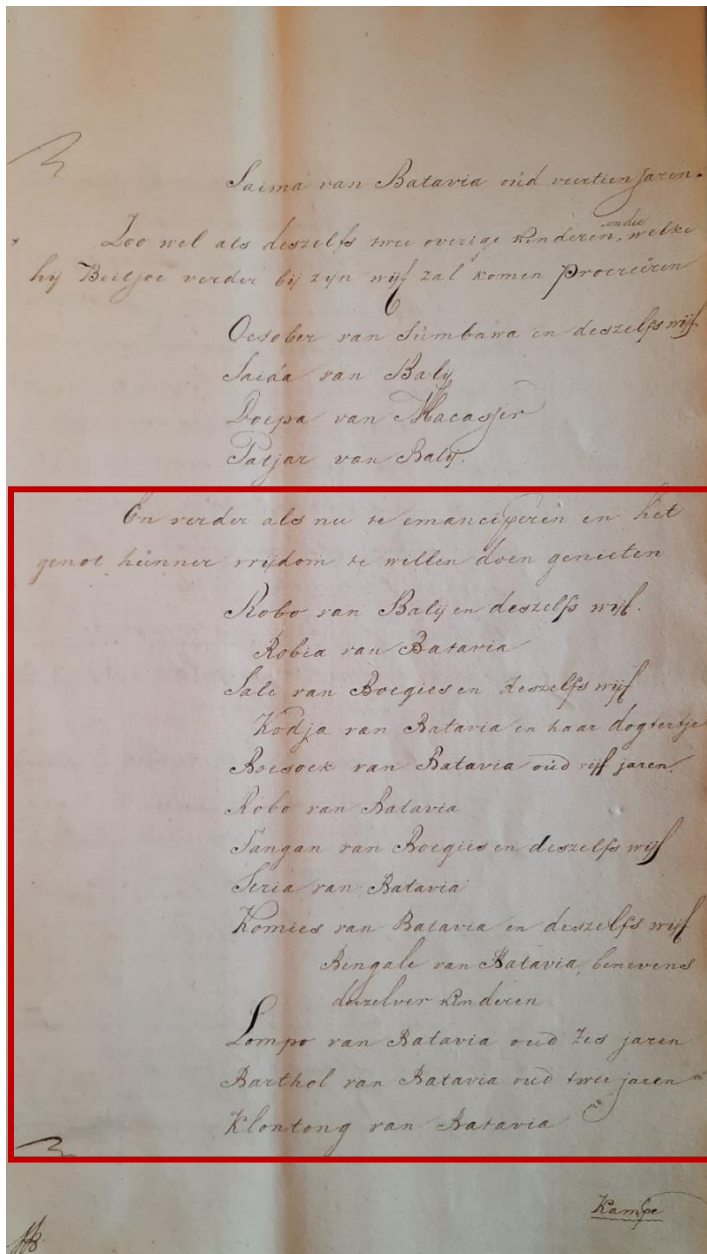 Saima van Batavia oud veertien jaren.
Zoo wel als deszelfs twee overige kinderen, en die welke
hij Beitjoe verder bij zijn wijf zal komen Procreëren
October van Sumbawa en deszelfs wijf
Saida van Balij
Doepa van Macasser
Patjar van Balij.
En verder als nu te emanciperen en het
genot hunner vrijdom te willen doen genieten
Robo van Balij en deszelfs wijf.
Robia van Batavia
Sale van Boegies en deszelfs wijf
Kodja van Batavia en haar dogtertje
Boesoek van Batavia oud vijf jaren.
Robo van Batavia
Tangan van Boegies en deszelfs wijf
Seria van Batavia
Komies van Batavia en deszelfs wijf
Bengale van Batavia, benevens
derzelver kinderen
Lompo van Batavia oud zes jaren
Barthol van Batavia oud twee jaren
Klontong van Batavia
Kampe